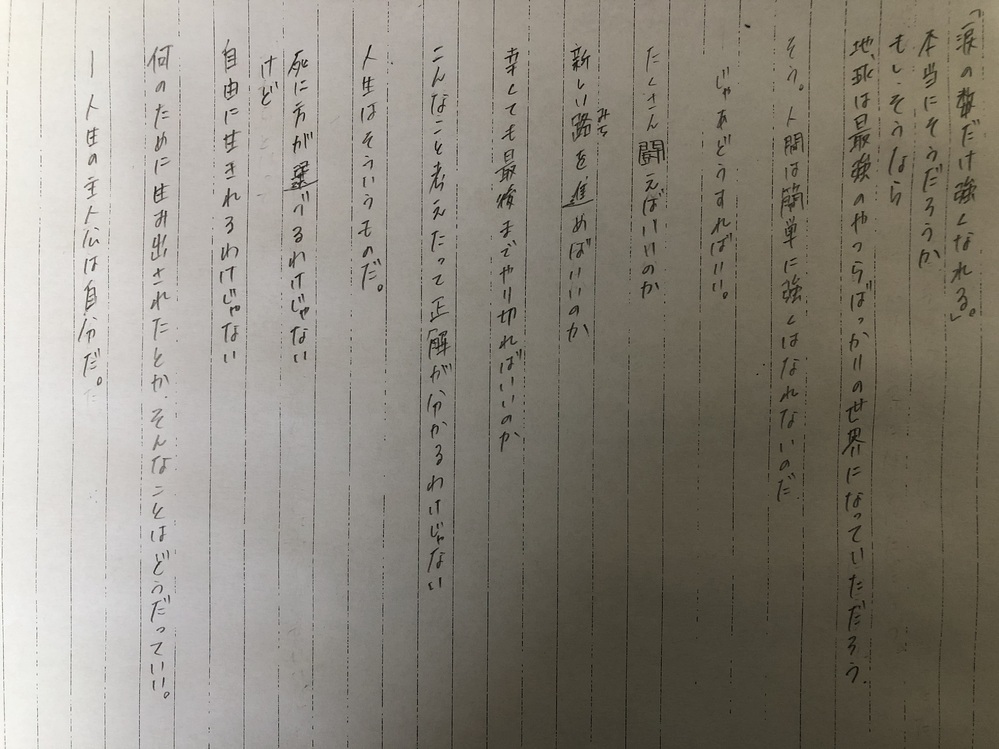 「涙の数だけ強くなれる」。
本当にそうだろうか
もしそうなら
地球は最強のやつらばっかりの世界になっていただろう.
そう。人間は簡単に強くはなれないのだ
じゃあどうすればいい。
たくさん闘えばいいのか
新しい路を進めばいいのか
みち
辛くても最後までやり切ればいいのか
こんなこと考えたって正解が分かるわけじゃない
人生はそういうものだ。
死に方が選べるわけじゃない
けど
自由に生きれるわけじゃない
何のために生み出されたとか、そんなことはどうだっていい。
ー人生の主人公は自分だ。